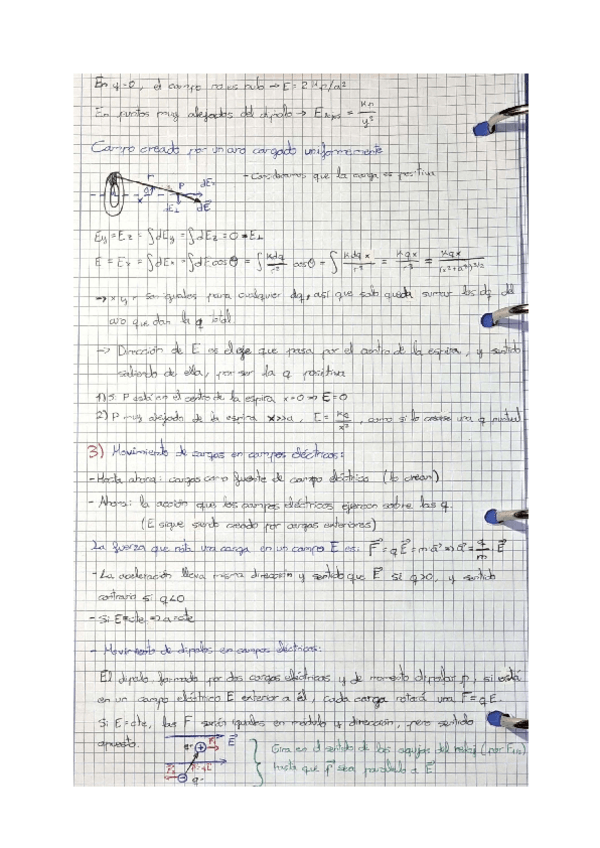 En y=0, el campo no es nulo → E = 2kp/a³
En puntos muy alejados del dipolo → E = kp/y³
Campo creado por un aro cargado uniformemente
- Consideramos que la carga es positiva
r
P
dE⊥ dE
Ey = Ez = ∫dEy = ∫dEz = 0 = E⊥
E = Ex = ∫dEx = ∫dE cosθ = ∫ kdq/r² cosθ = ∫ kdq x/r³ = kqx/r³ = kqx/(x²+a²)^3/2
→ x y r son iguales para cualquier dq, así que solo queda sumar los dq del
aro que dan la q total
→ Dirección de E es el eje que pasa por el centro de la espira, y sentido
saliendo de ella, por ser la q positiva
1) Si P está en el centro de la espira x=0 ⇒ E=0
2) P muy alejado de la espira x>>a, E = kq/x², como si lo crease una q puntual
3) Movimiento de cargas en campos eléctricos:
- Hasta ahora: cargas como fuente de campo eléctrico (lo crean)
- Ahora: la acción que los campos eléctricos ejercen sobre las q.
(E sigue siendo creado por cargas exteriores)
La fuerza que nota una carga en un campo E es: F⃗ = qE⃗ = ma⃗ ⇒ a⃗ = q/m · E⃗
- La aceleración lleva misma dirección y sentido que E⃗ si q>0, y sentido
contrario si q<0
- Si E=cte ⇒ a=cte
- Movimiento de dipolos en campos eléctricos:
El dipolo, formado por dos cargas eléctricas y de momento dipolar p, si está
en un campo eléctrico E exterior a él, cada carga notará una F⃗ = qE.
Si E=cte, las F serán iguales en módulo y dirección, pero sentido
opuesto.
E⃗
Gira en el sentido de las agujas del reloj (por F)
hasta que p⃗ sea paralelo a E⃗